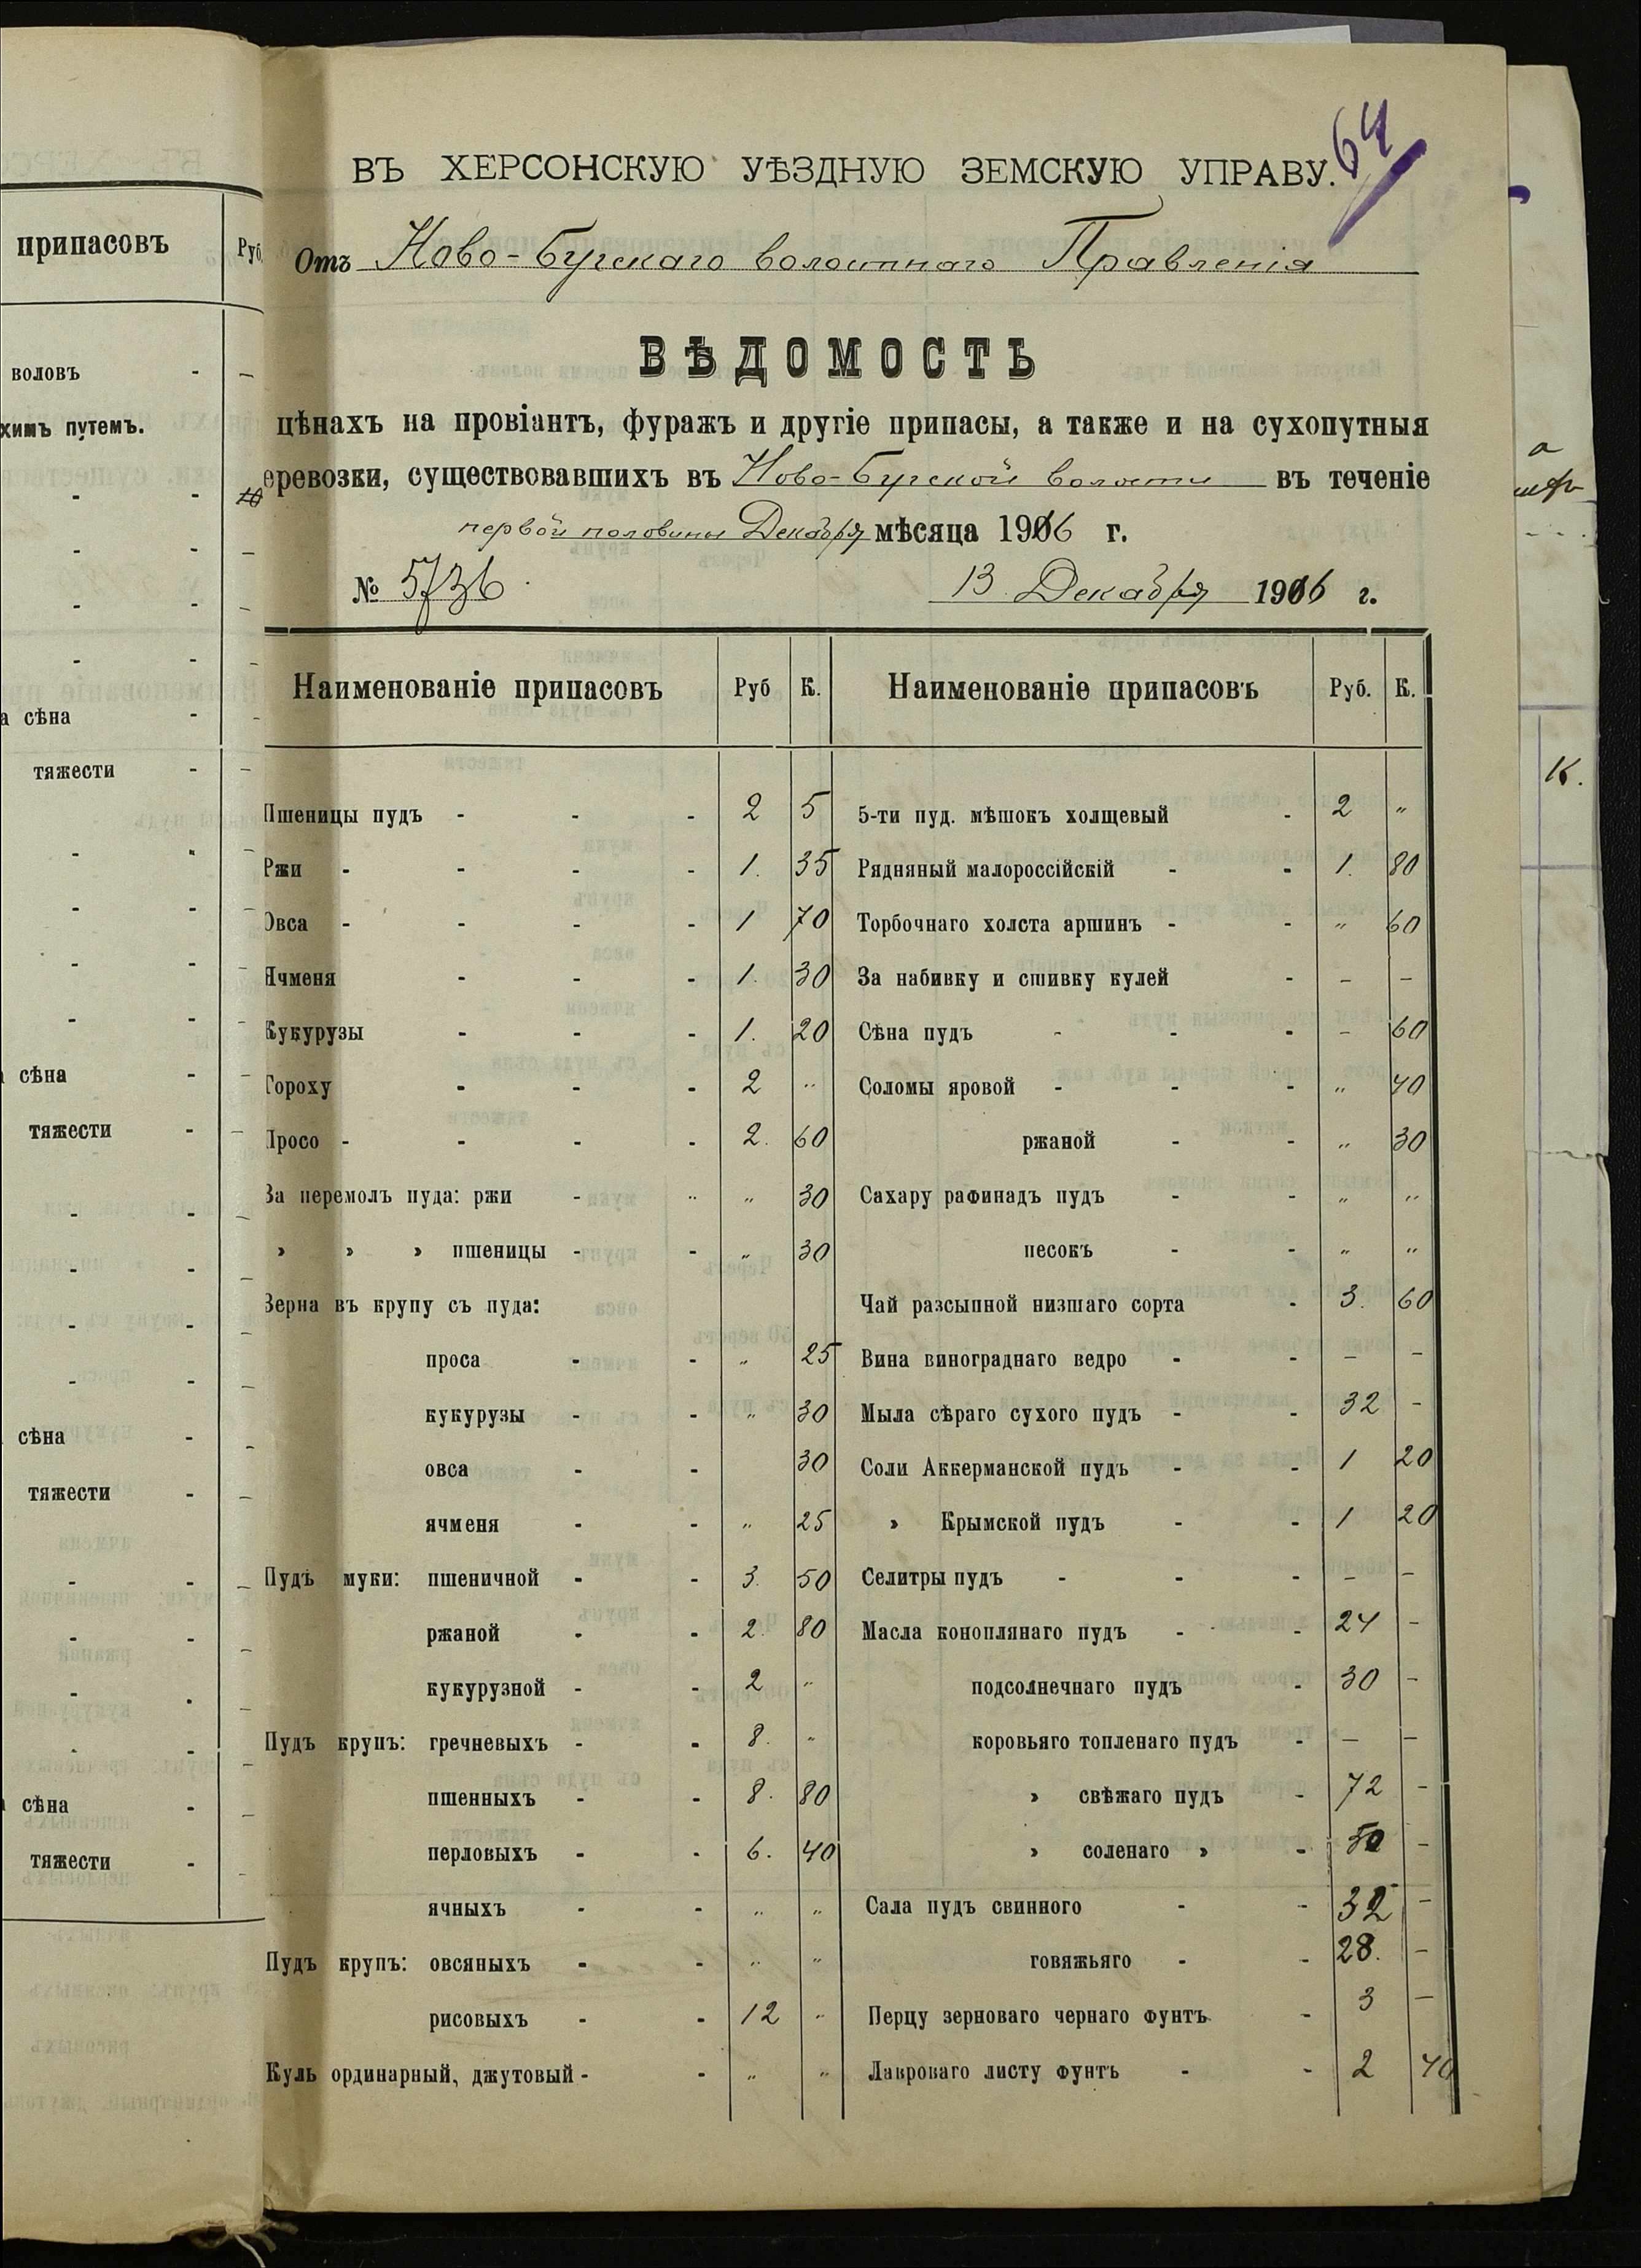 64
ВЪ ХЕРСОНСКУЮ УѢЗДНУЮ ЗЕМСКУЮ УПРАВУ.
Отъ Ново-Бугскаго волостнаго Правленія
ВѢДОМОСТЬ
цѣнахъ на провіантъ, фуражъ и другіе припасы, а также и на сухопутныя
еревозки, существовавшихъ въ Ново-Бугской волости въ теченіе
первой половины Декабря мѣсяца 1916 г.
№ 5736
13 Декабря 1916 г.
Наименованіе припасовъ Руб К. Наименованіе припасовъ Руб. К.
Пшеницы пудъ - - - 2 5 5-ти пуд. мѣшокъ холщевый - 2 „
Ржи - - - - 1. 35 Рядняный малороссійскій - - 1. 80
Овса - - - - 1 70 Торбочнаго холста аршинъ - - „ 60
Ячменя - - - 1. 30 За набивку и сшивку кулей - - -
Кукурузы - - - 1. 20 Сѣна пудъ - - - - 60
Гороху - - - 2 „ Соломы яровой - - - „ 40
Просо - - - - 2. 60 ржаной - - „ 30
За перемолъ пуда: ржи - „ „ 30 Сахару рафинадъ пудъ - - „ „
» » » пшеницы - - „ 30 песокъ - - „ „
Зерна въ крупу съ пуда: Чай разсыпной низшаго сорта - 3. 60
проса - - „ 25 Вина винограднаго ведро - - - -
кукурузы - - „ 30 Мыла сѣраго сухого пудъ - - 32 -
овса - - 30 Соли Аккерманской пудъ - - 1 20
ячменя - - „ 25 » Крымской пудъ - - 1 20
Пудъ муки: пшеничной - - 3. 50 Селитры пудъ - - - - -
ржаной - - 2. 80 Масла коноплянаго пудъ - - 24 -
кукурузной - - 2 „ подсолнечнаго пудъ - 30 -
Пудъ крупъ: гречневыхъ - - 8. „ коровьяго топленаго пудъ - - -
пшенныхъ - - 8. 80 » свѣжаго пудъ - 72 -
перловыхъ - - 6. 40 » соленаго » - 50 -
ячныхъ - - „ „ Сала пудъ свинного - - 32 -
Пудъ крупъ: овсяныхъ - - „ „ говяжьяго - - 28. -
рисовыхъ - - 12 „ Перцу зерноваго чернаго фунтъ - 3 -
Куль ординарный, джутовый - - „ „ Лавроваго листу фунтъ - - 2 40
припасовъ Руб.
воловъ - -
химъ путемъ.
а сѣна - -
тяжести - -
сѣна - -
тяжести - -
сѣна - -
тяжести - -
сѣна - -
тяжести - -
К.